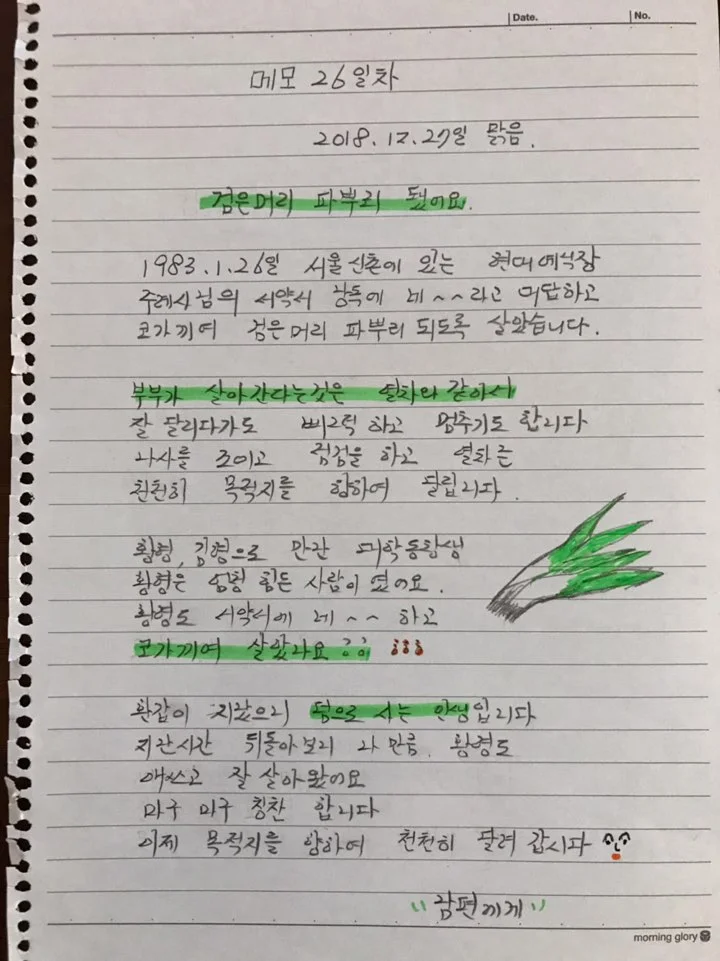 Date.
No.
메모 26일차
2018.12.27일 맑음.
검은머리 파뿌리 됐어요.
1983.1.26일 서울신촌에 있는 현대예식장
주례사님의 서약서 낭독에 네~~라고 대답하고
코가끼여 검은머리 파뿌리되도록 살았습니다.
부부가 살아간다는것은 열차와 같아서
잘 달리다가도 삐그덕 하고 멈추기도 합니다
나사를 조이고 점검을 하고 열차는
천천히 목적지를 향하여 달립니다.
황형, 김형으로 만난 대학동창생
황형은 엄청 힘든 사람이였어요.
황형도 서약서에 네~~ 하고
코가끼여 살았나요
환갑이 지났으니 덤으로 사는 인생입니다
지난시간 뒤돌아보니 나만큼. 황형도
애쓰고 잘 살아왔어요
마구 마구 칭찬 합니다
이제 목적지를 향하여 천천히 달려 갑시다
"남편에게"
morning glory